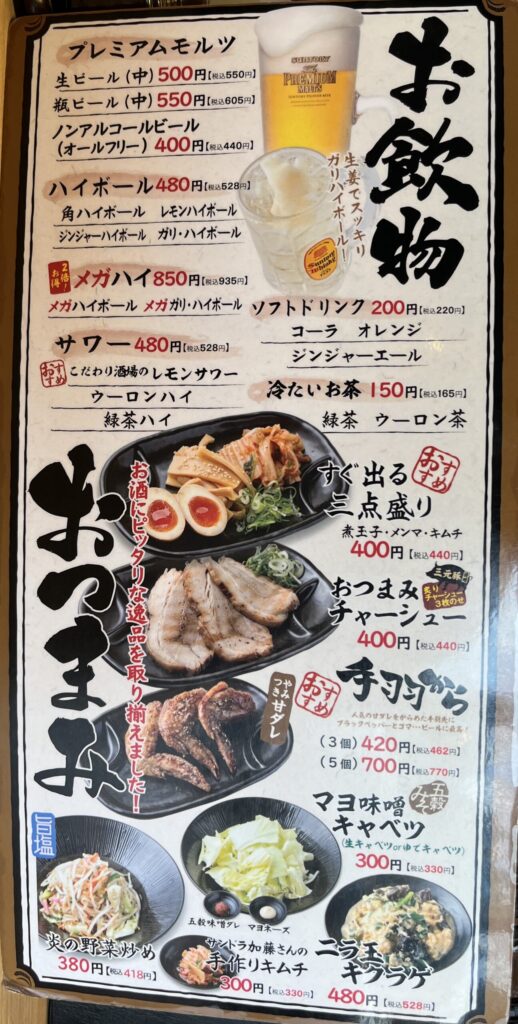 お飲物
プレミアムモルツ
生ビール(中) 500円【税込550円】
瓶ビール(中) 550円【税込605円】
ノンアルコールビール
(オールフリー) 400円【税込440円】
ハイボール 480円【税込528円】
角ハイボール レモンハイボール
ジンジャーハイボール ガリ・ハイボール
2倍!お得
メガハイ 850円【税込935円】
メガハイボール メガガリ・ハイボール
サワー 480円【税込528円】
おすすめ
こだわり酒場のレモンサワー
ウーロンハイ
緑茶ハイ
SUNTORY
The PREMIUM
MALT'S
生姜でスッキリ
ガリハイボール!
Suntory
Whisky
ソフトドリンク 200円【税込220円】
コーラ オレンジ
ジンジャーエール
冷たいお茶 150円【税込165円】
緑茶 ウーロン茶
おつまみ
お酒にピッタリな逸品を取り揃えました!
おすすめ
すぐ出る
三点盛り
煮玉子・メンマ・キムチ
400円【税込440円】
おつまみ
チャーシュー
三元豚
炙り
チャーシュー
3枚のせ
400円【税込440円】
おすすめ
手羽から
やみつき甘ダレ
人気の甘ダレをからめた手羽先に
ブラックペッパーとゴマ…ビールに最高!
(3個) 420円【税込462円】
(5個) 700円【税込770円】
マヨ味噌
キャベツ
五穀みそ
(生キャベツorゆでキャベツ)
300円【税込330円】
五穀味噌ダレ マヨネーズ
旨塩
炎の野菜炒め
380円【税込418円】
サンドラ加藤さんの
手作りキムチ
300円【税込330円】
ニラ玉
キクラゲ
480円【税込528円】